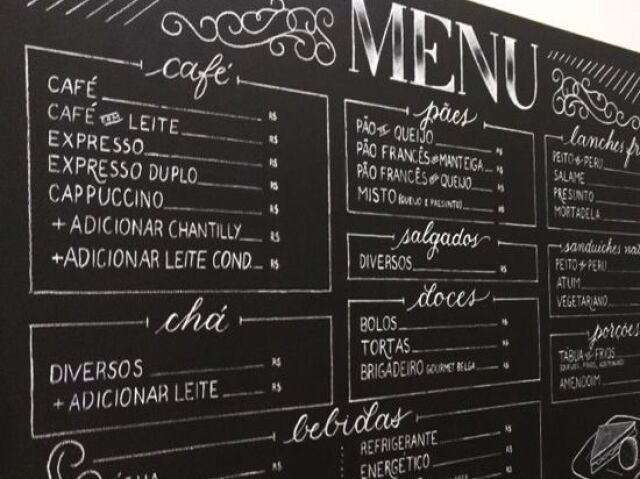 MENU
café
CAFÉ R$
CAFÉ com LEITE R$
EXPRESSO R$
EXPRESSO DUPLO R$
CAPPUCCINO R$
+ ADICIONAR CHANTILLY R$
+ ADICIONAR LEITE COND. R$
chá
DIVERSOS R$
+ ADICIONAR LEITE R$
pães
PÃO de QUEIJO R$
PÃO FRANCÊS com MANTEIGA R$
PÃO FRANCÊS com QUEIJO R$
MISTO (QUEIJO E PRESUNTO) R$
salgados
DIVERSOS R$
doces
BOLOS R$
TORTAS R$
BRIGADEIRO GOURMET BELGA R$
bebidas
REFRIGERANTE R$
ENERGÉTICO R$
lanches fr
PEITO de PERU
SALAME
PRESUNTO
MORTADELA
sanduiches nat
PEITO de PERU
ATUM
VEGETARIANO
porções
TÁBUA de FRIOS
AMENDOIM